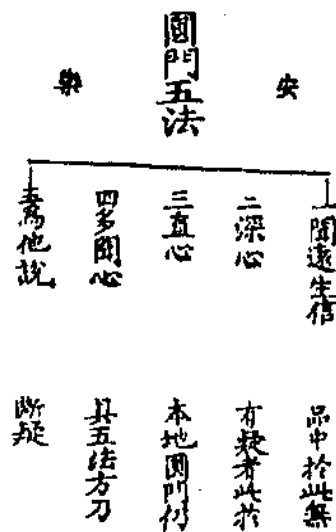 圓門五法
安
樂
一聞遠生信
二深心
三直心
四多聞心
五為他說
品中於此無
有疑者此於
本地圓門何
具五法方刀
斷疑